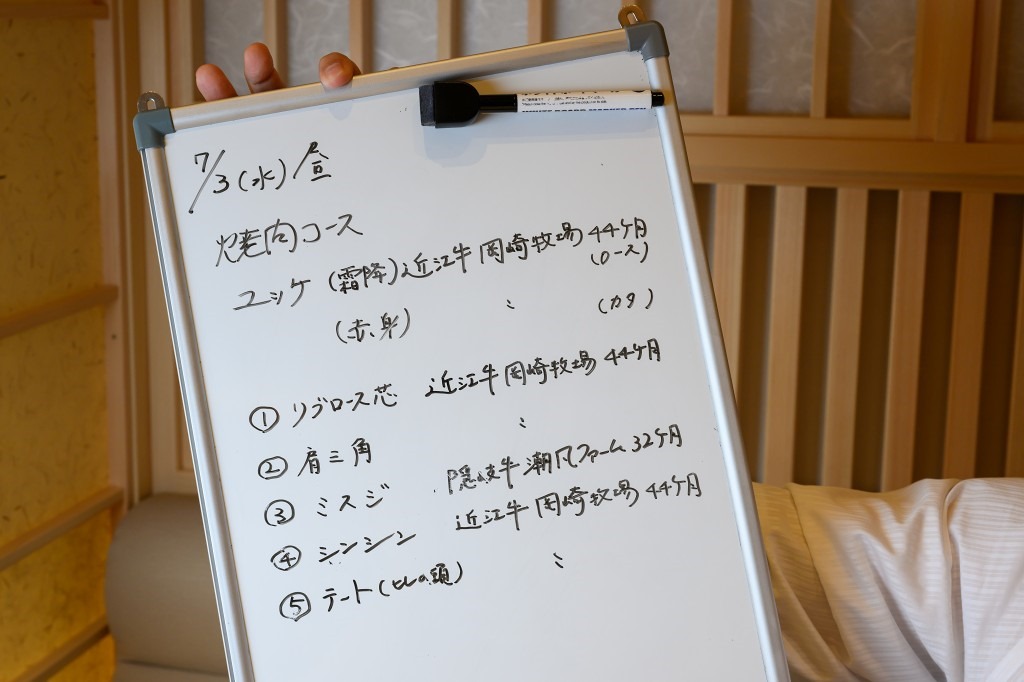 7/3(水)昼
焼肉コース
ユッケ (霜降)近江牛 岡崎牧場 44ヶ月
(ロース)
(赤身) 〃 (カタ)
① リブロース芯 近江牛 岡崎牧場 44ヶ月
② 肩三角 〃
③ ミスジ 隠岐牛 潮凡ファーム 32ヶ月
④ シンシン 近江牛 岡崎牧場 44ヶ月
⑤ テート(ヒレの頭) 〃